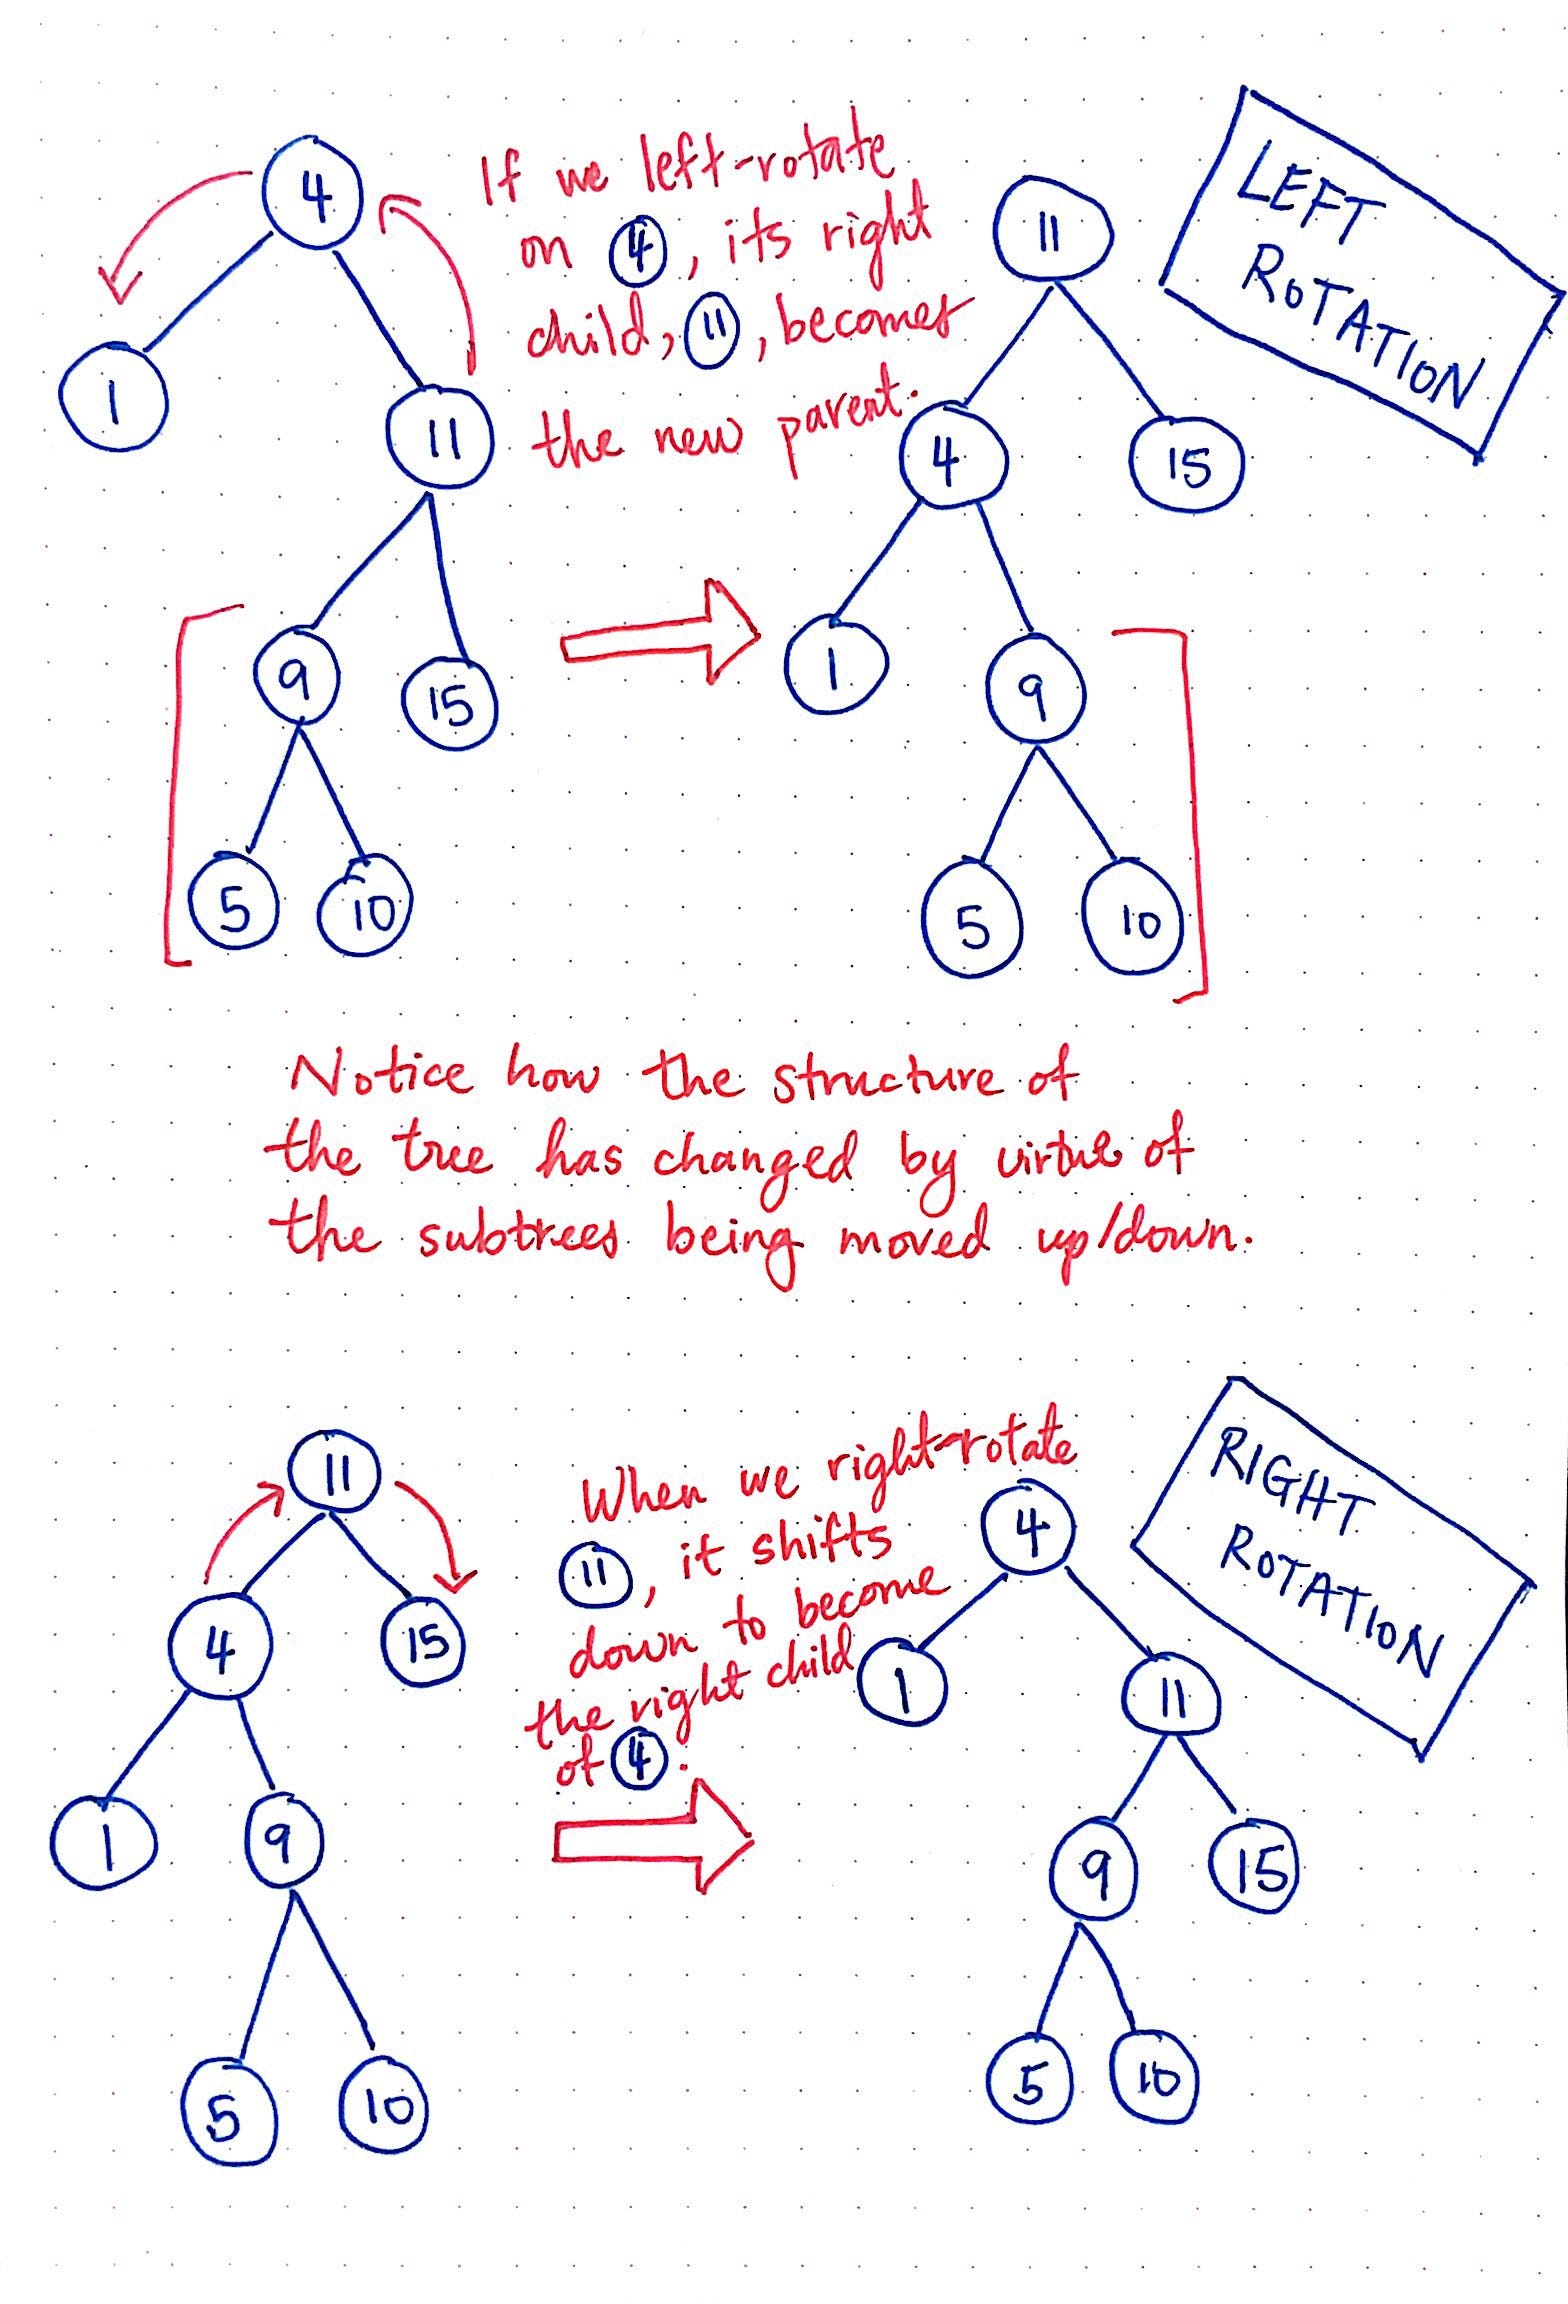 4
1
11
9
15
5
10
If we left-rotate
on 4, its right
child, 11, becomes
the new parent.
11
4
15
1
9
5
10
LEFT
ROTATION
Notice how the structure of
the tree has changed by virtue of
the subtrees being moved up/down.
11
4
15
1
9
5
10
When we right-rotate
11, it shifts
down to become
the right child
of 4.
4
1
11
9
15
5
10
RIGHT
ROTATION